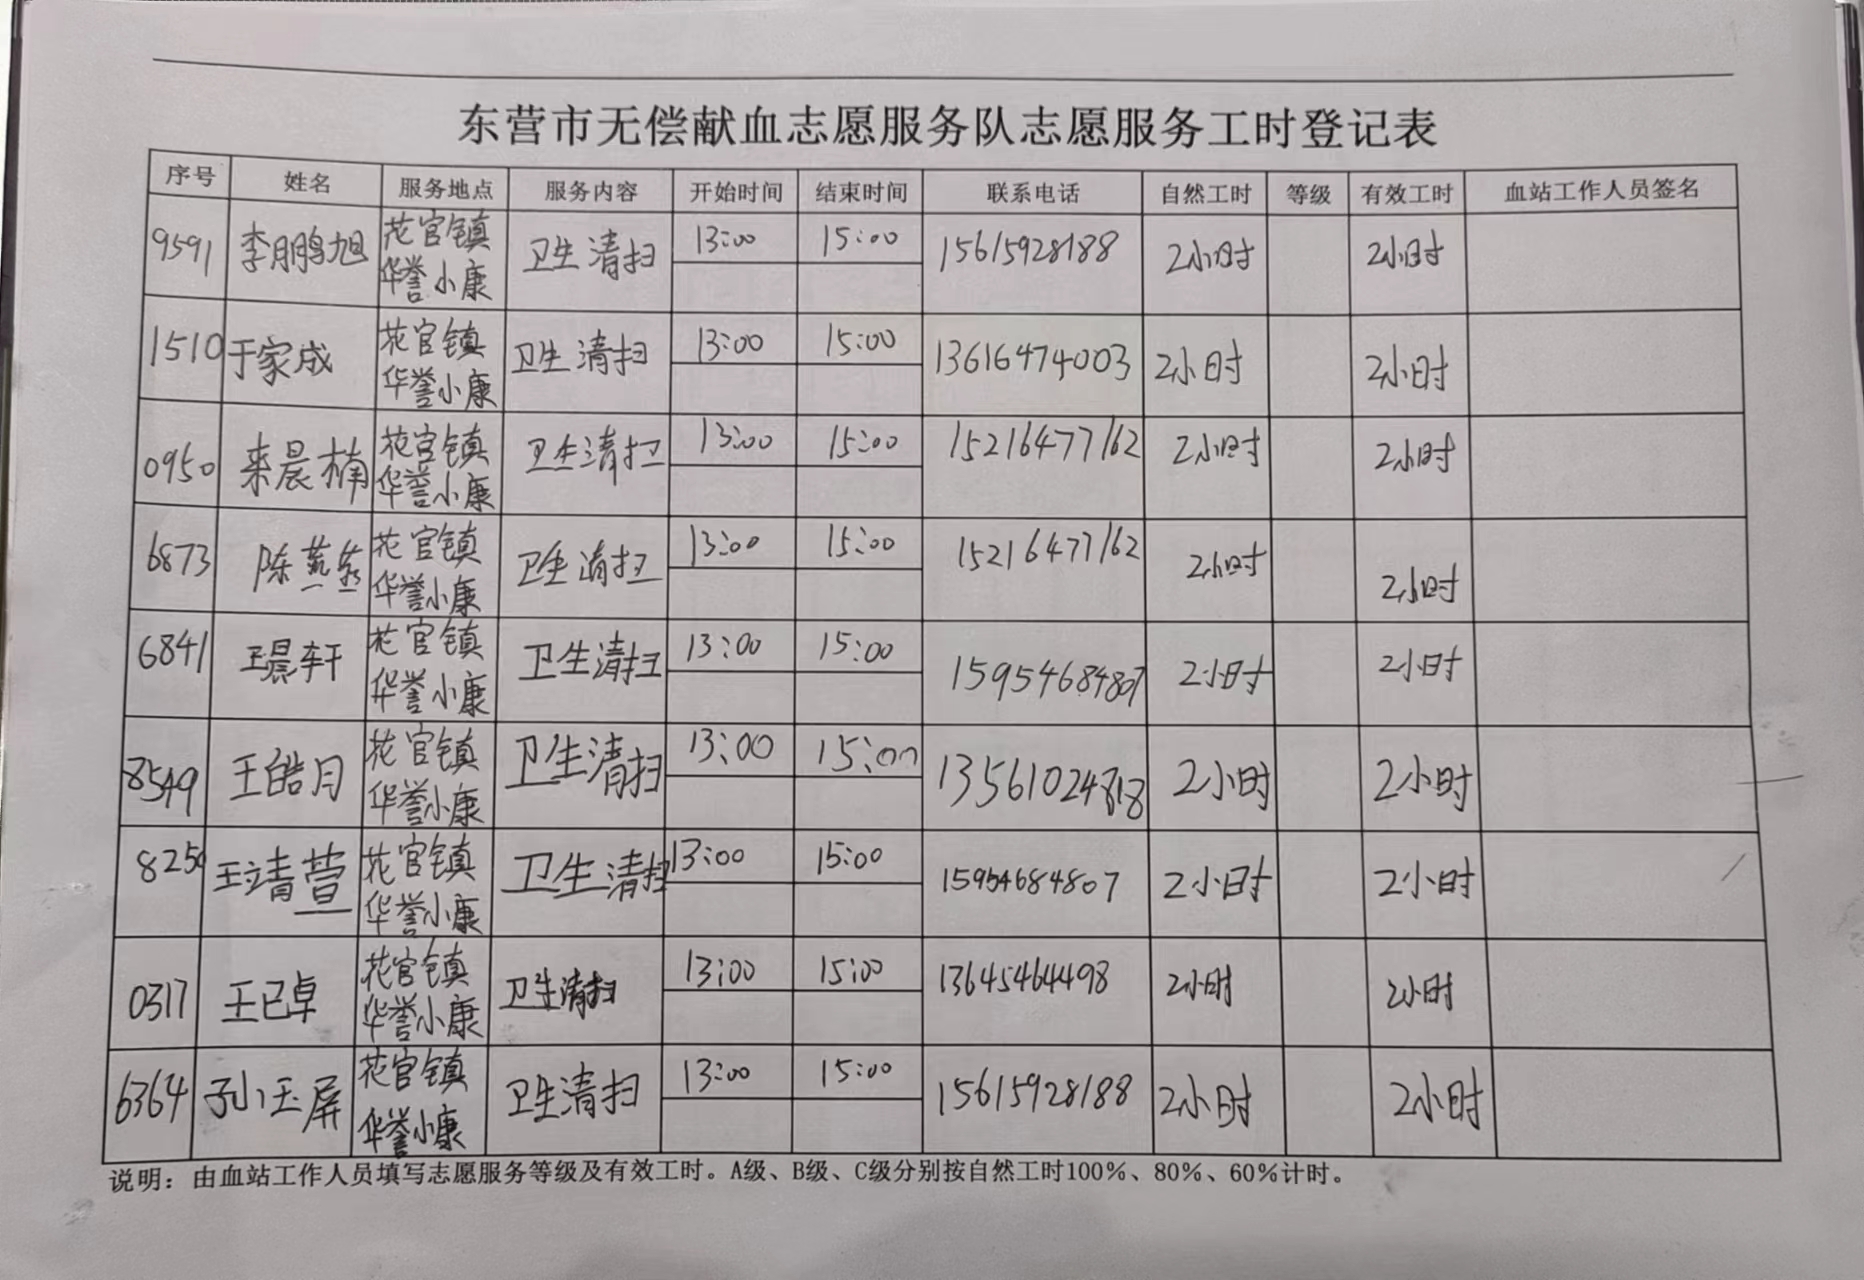 东营市无偿献血志愿服务队志愿服务工时登记表
序号 姓名 服务地点 服务内容 开始时间 结束时间 联系电话 自然工时 等级 有效工时 血站工作人员签名
9591 李鹏旭 花官镇华誉小康 卫生清扫 13:00 15:00 15615928188 2小时 2小时
1510 于家成 花官镇华誉小康 卫生清扫 13:00 15:00 13616474003 2小时 2小时
0950 来晨楠 花官镇华誉小康 卫生清扫 13:00 15:00 15216477162 2小时 2小时
6873 陈燕燕 花官镇华誉小康 卫生清扫 13:00 15:00 15216477162 2小时 2小时
6841 王晨轩 花官镇华誉小康 卫生清扫 13:00 15:00 15954684807 2小时 2小时
8549 王皓月 花官镇华誉小康 卫生清扫 13:00 15:00 13561024818 2小时 2小时
8250 王靖萱 花官镇华誉小康 卫生清扫 13:00 15:00 15954684807 2小时 2小时
0317 王已卓 花官镇华誉小康 卫生清扫 13:00 15:00 13645464498 2小时 2小时
6364 孙玉屏 花官镇华誉小康 卫生清扫 13:00 15:00 15615928188 2小时 2小时
说明：由血站工作人员填写志愿服务等级及有效工时。A级、B级、C级分别按自然工时100%、80%、60%计时。